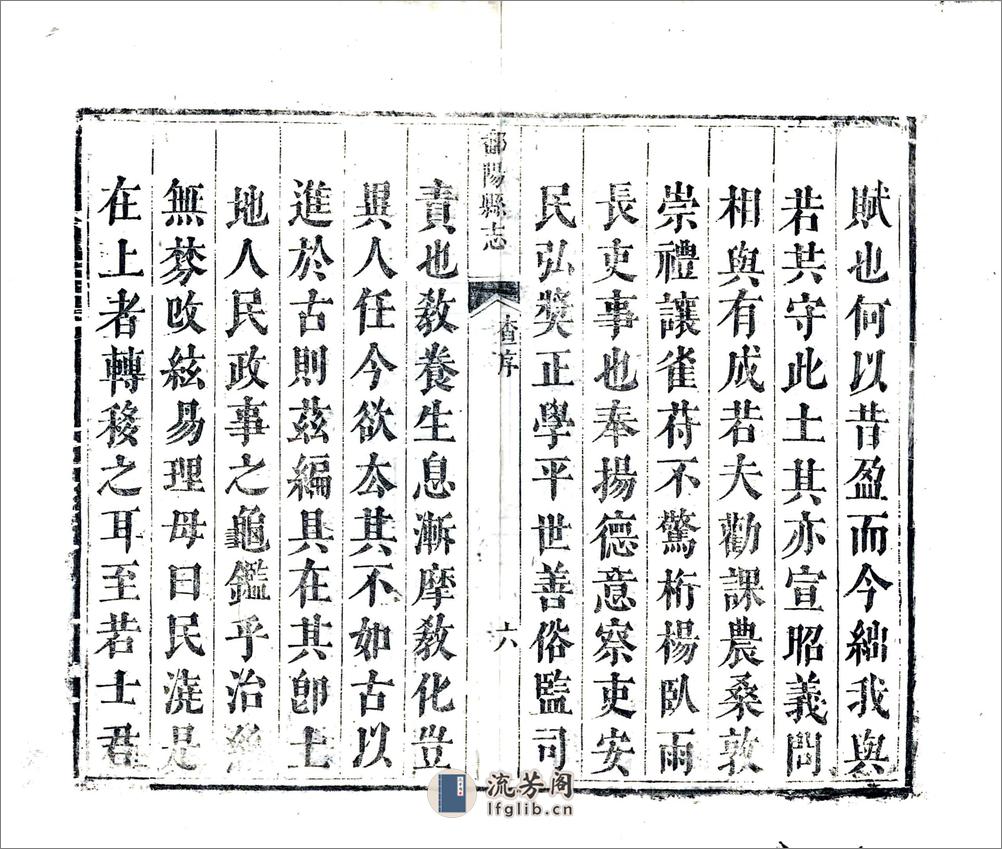 賦也何以昔盈而今絀我與
若共守此土其亦宣昭義問
相與有成若夫勸課農桑敦
崇禮讓雀苻不驚桁楊臥雨
長吏事也奉揚德意察吏安
民弘獎正學平世善俗監司
鄱陽縣志
查序
六
責也敎養生息漸摩敎化豈
異人任今欲厺其不如古以
進於古則茲編具在其卽土
地人民政事之龜鑑乎治絲
無棼改絃易理毋曰民澆是
在上者轉移之耳至若士君
流芳阁
lfglib.cn